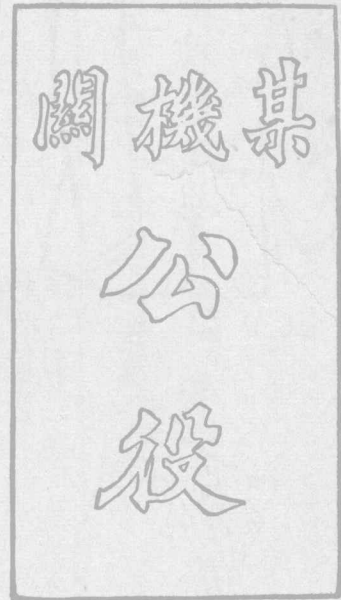 某機關
公
役